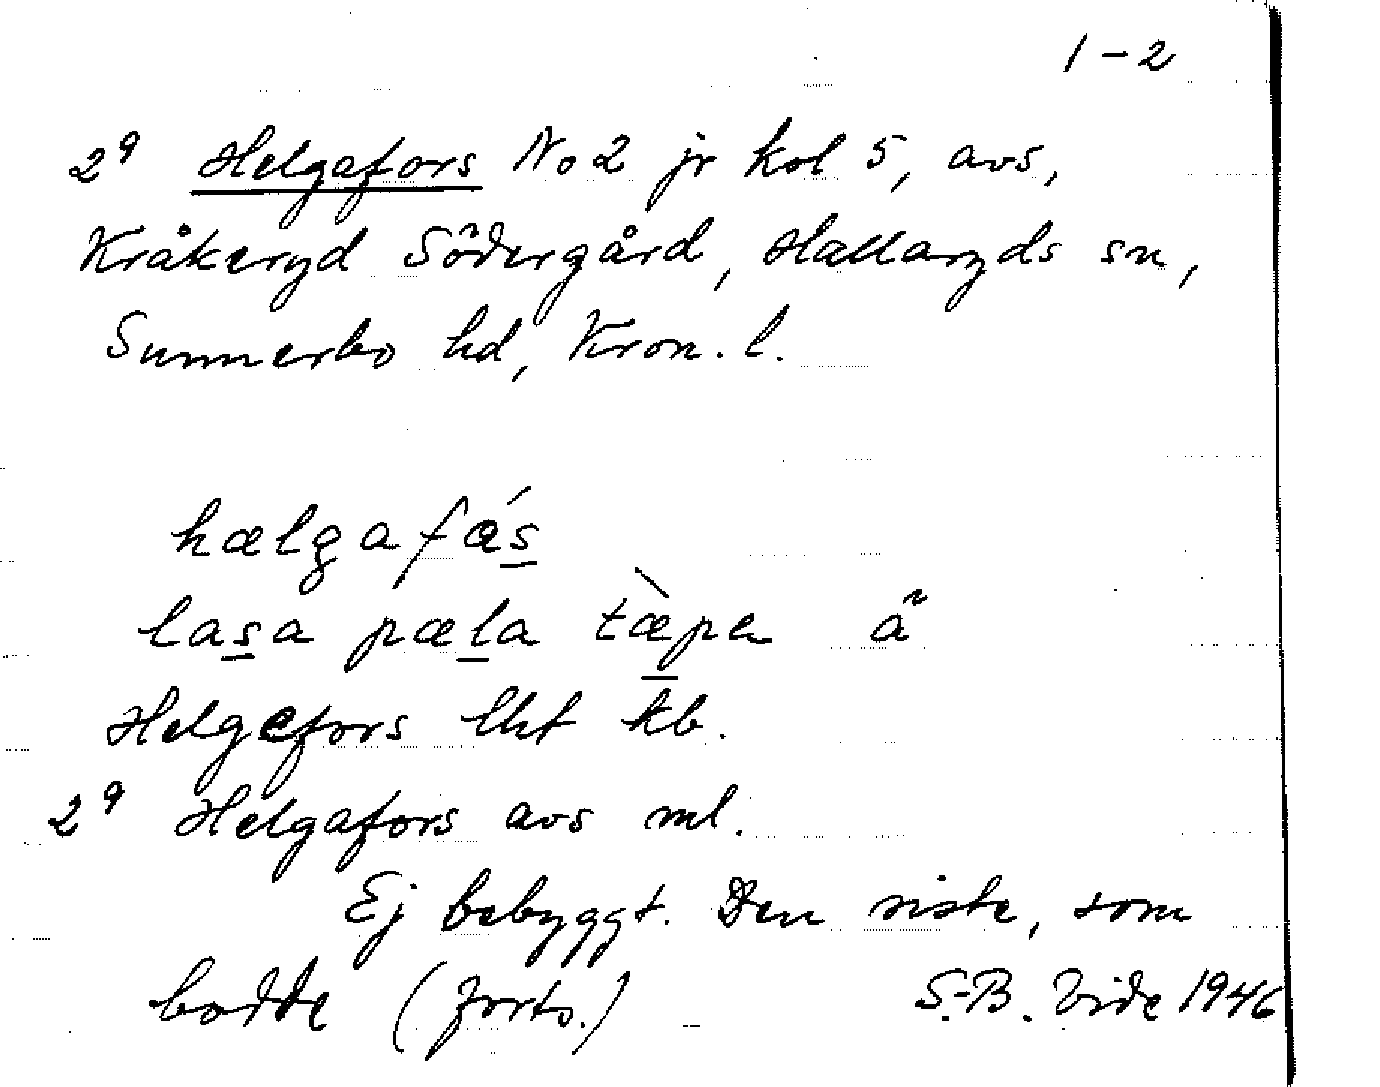 1-2
2⁹ Helgafors No 2 jr kol 5, avs,
Kråkeryd Södergård, Hallaryds sn,
Sunnerbo hd, Kron. l.
hælgafǽs
lasa pæla tæ̀pen å
Helgefors lht kb.
2⁹ Helgafors avs ml.
Ej bebyggt. Den siste, som
bodde (forts.)
S.-B. Vide 1946